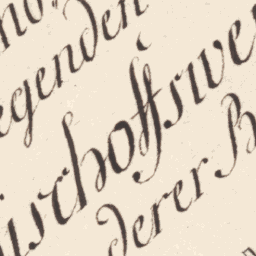 egenden
ischoffswe
derer B